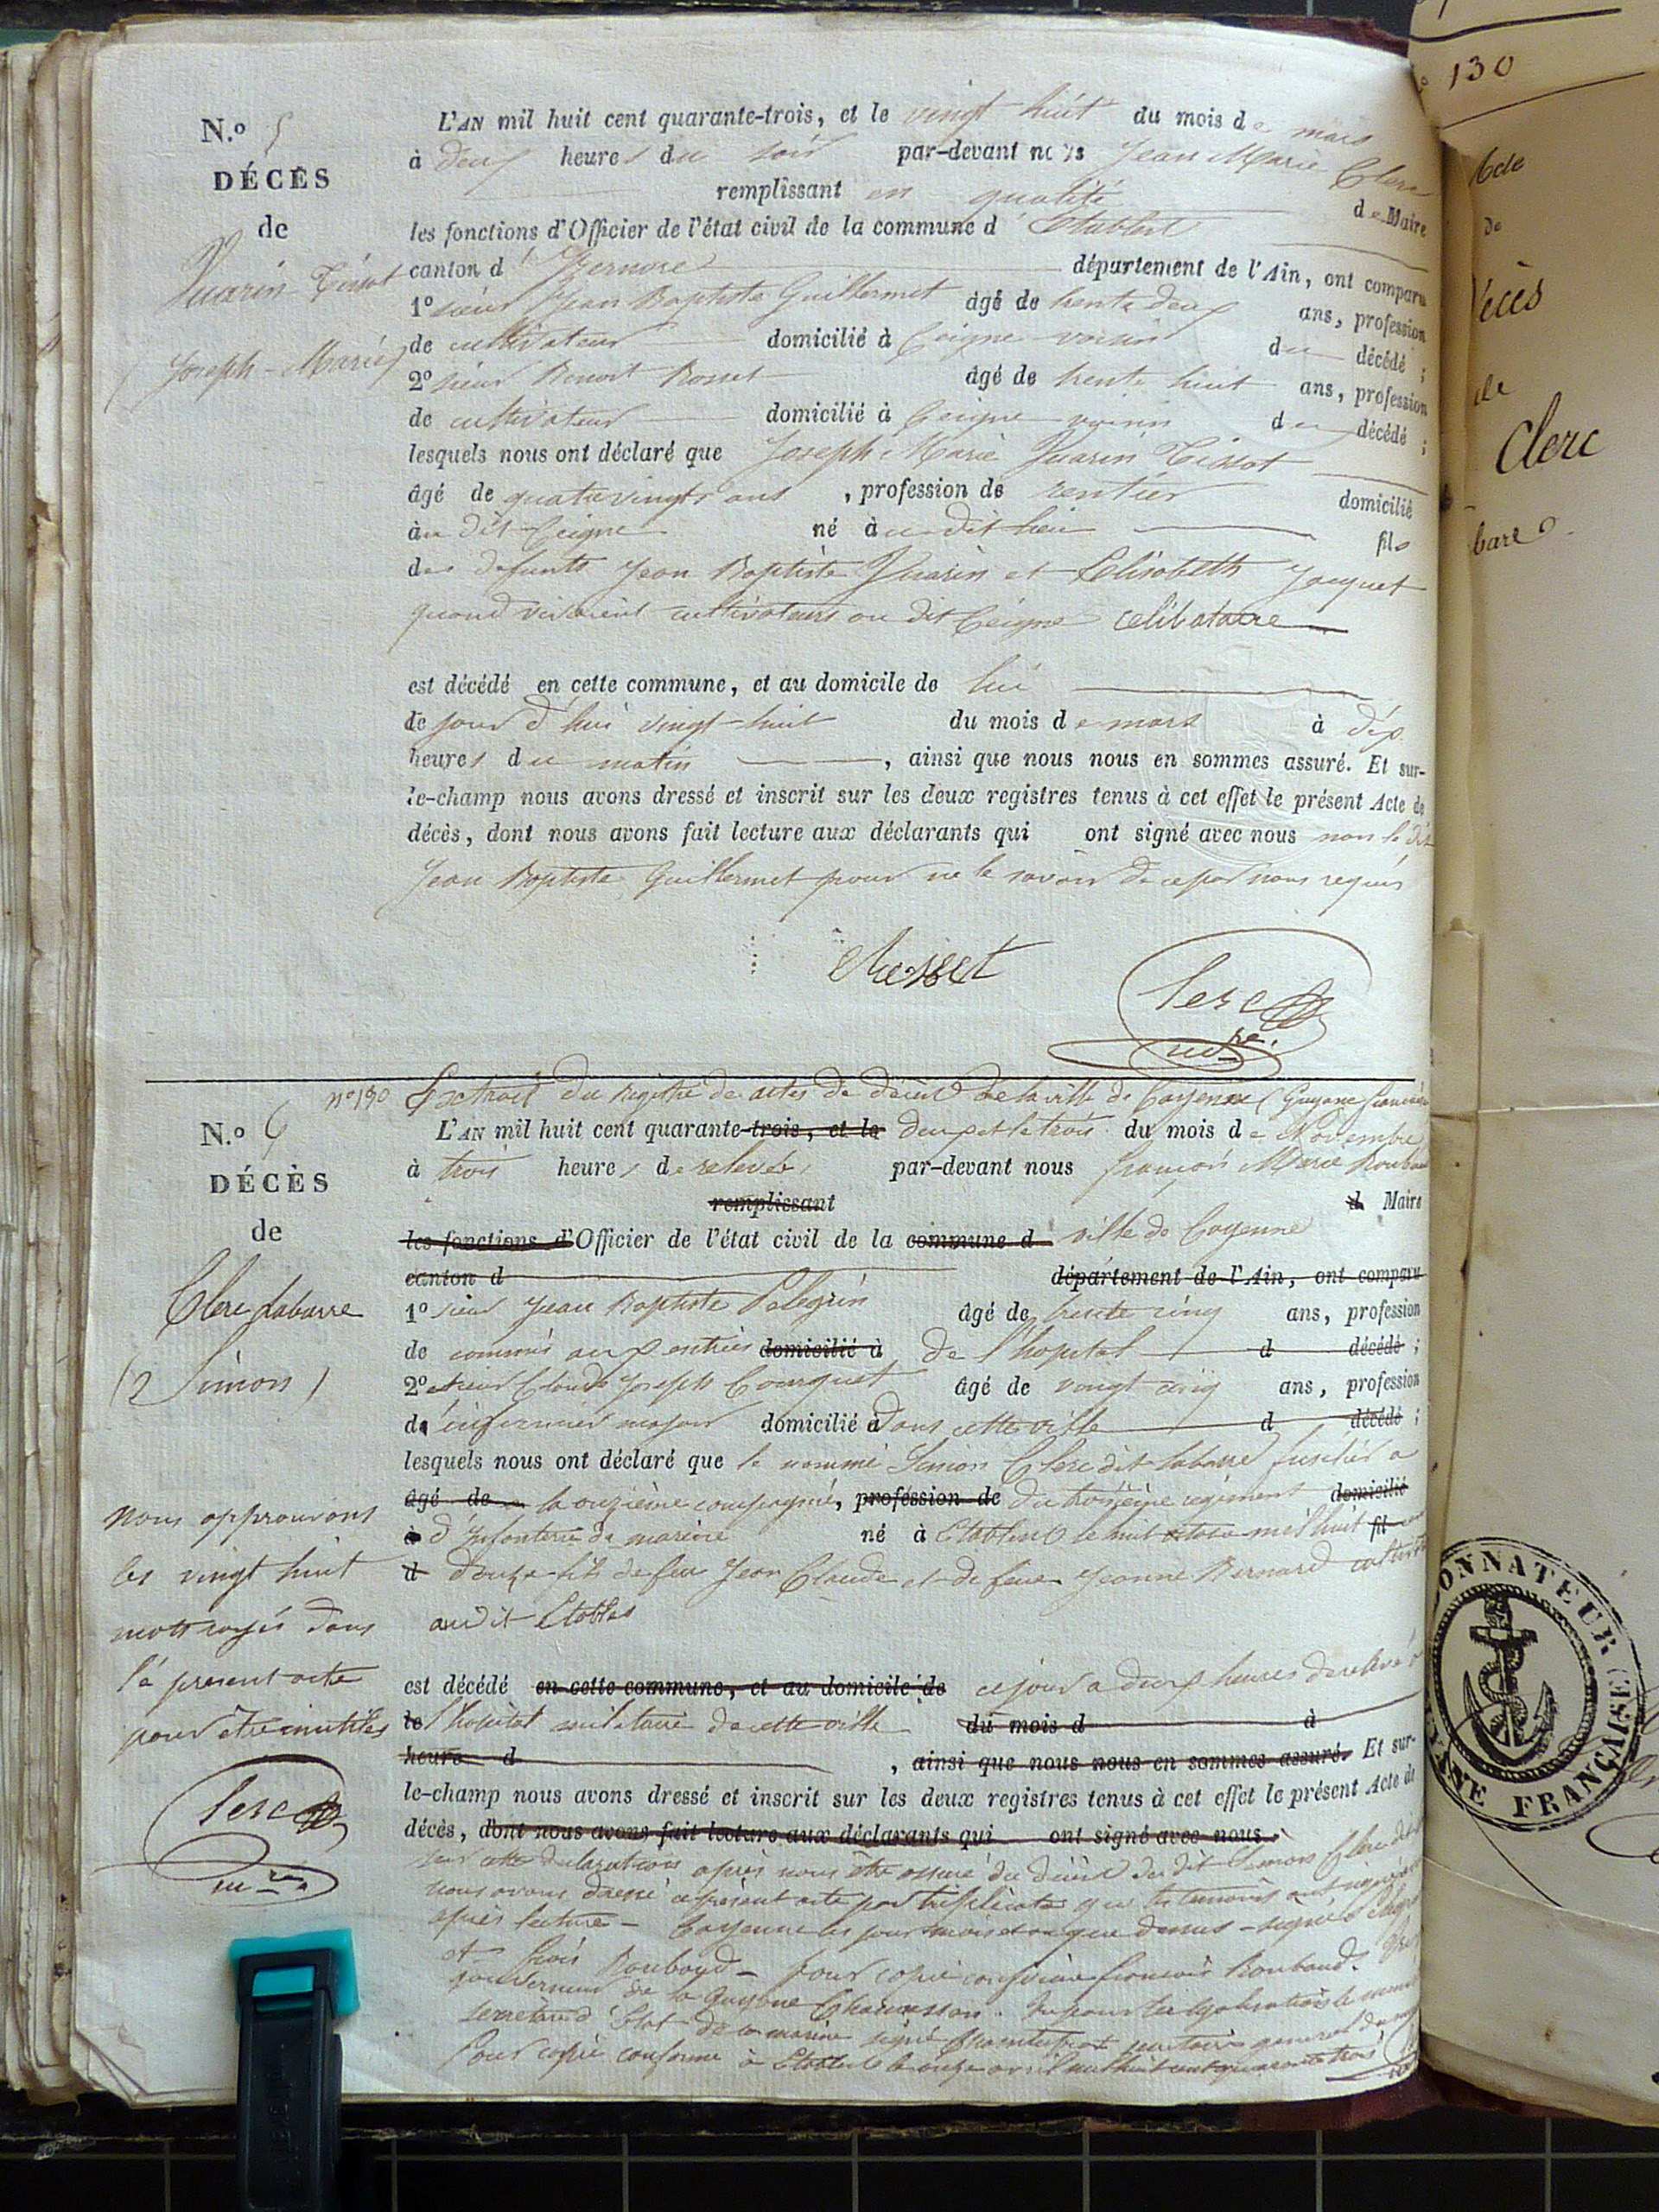 N.º 5
DÉCÈS
de
Vuarin Tissot
Joseph-Marie
L'AN mil huit cent quarante-trois, et le vingt huit du mois de mars
à deux heures du soir par-devant nous Jean Marie Clerc
remplissant en qualité de Maire
les fonctions d'Officier de l'état civil de la commune d'Etables
canton d département de l'Ain, ont comparu
1º sieur Jean Baptiste Guillermet âgé de trente deux ans, profession
de cultivateur domicilié à Ceigne voisin du décédé ;
2º sieur Benoit Rosset âgé de trente huit ans, profession
de cultivateur domicilié à Ceigne voisin du décédé ;
lesquels nous ont déclaré que Joseph Marie Vuarin Tissot
âgé de quatre vingts ans , profession de rentier domicilié
au dit Ceigne né au dit lieu fils
des defunts Jean Baptiste Vuarin et Elisabeth Jacquet
quand vivaient cultivateurs au dit Ceigne celibataire
est décédé en cette commune, et au domicile de lui
le jour d'hui vingt-huit du mois de mars à dix
heures du matin , ainsi que nous nous en sommes assuré. Et sur-
le-champ nous avons dressé et inscrit sur les deux registres tenus à cet effet le présent Acte de
décès, dont nous avons fait lecture aux déclarants qui ont signé avec nous non le dit
Jean Baptiste Guillermet pour ne le savoir de ce par nous requis
Rosset
Clerc
mre
nº 130 Extrait du registre de actes de décès de la ville de Cayenne (Guyane française
N.º 6
DÉCÈS
de
Clerc Labarre
(2 Simon)
L'AN mil huit cent quarante-trois, et le deux et le trois du mois de Novembre
à trois heures de relevée, par-devant nous françois Marie Roubaud
remplissant d Maire
les fonctions d'Officier de l'état civil de la commune d ville de Cayenne
canton d département de l'Ain, ont comparu
1º sieur Jean Baptiste Pelegrin âgé de trente cinq ans, profession
de commis aux entrées domicilié à de l'hopital d décédé ;
2º et sieur Claude Joseph Courquet âgé de vingt cinq ans, profession
d'infirmier major domicilié à dans cette ville d décédé ;
lesquels nous ont déclaré que le nommé Simon Clerc dit labarre fusilier a
âgé de la onzième compagnie, profession de du troisième régiment domicilié
à d'infanterie de marine né à Etables le huit octobre mil huit fil cent
d douze fils de feu Jean Claude et de feue Jeanne Bernard
audit Etables
est décédé en cette commune, et au domicile de ce jour a deux heures de relevé à
le l'hopital militaire de cette ville du mois d à
heure d , ainsi que nous nous en sommes assuré. Et sur-
le-champ nous avons dressé et inscrit sur les deux registres tenus à cet effet le présent Acte de
décès, dont nous avons fait lecture aux déclarants qui ont signé avec nous.
sur cette declaration après nous être assuré du décès du dit Simon Clerc dit
nous avons dressé ce présent acte par triplicata que les temoins ont signé
après lecture - Cayenne les jour mois et an que dessus - signé
et Roubaud - pour copie conforme françois Roubaud.
gouverneur de la Guyane
secretaire d'Etat de la marine signé general
Pour copie conforme à Etables le onze avril mil huit cent quarante trois
nous approuvons
les vingt huit
mots rayés dans
le present acte
pour être inutiles
Clerc
mre
130
Acte
de
Décès
de
Clerc
barre
ONNATEUR
FRANÇAISE